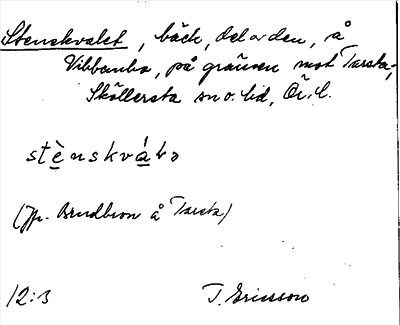 Stenskvalet, bäck, del av den, å
Vibbanbo, på gränsen mot Tarsta,
Sköllersta sn o. hd, Ör. l.
stènskváḷə
(Jfr. Brudbron å Tarsta)
12:3 T. Ericsson